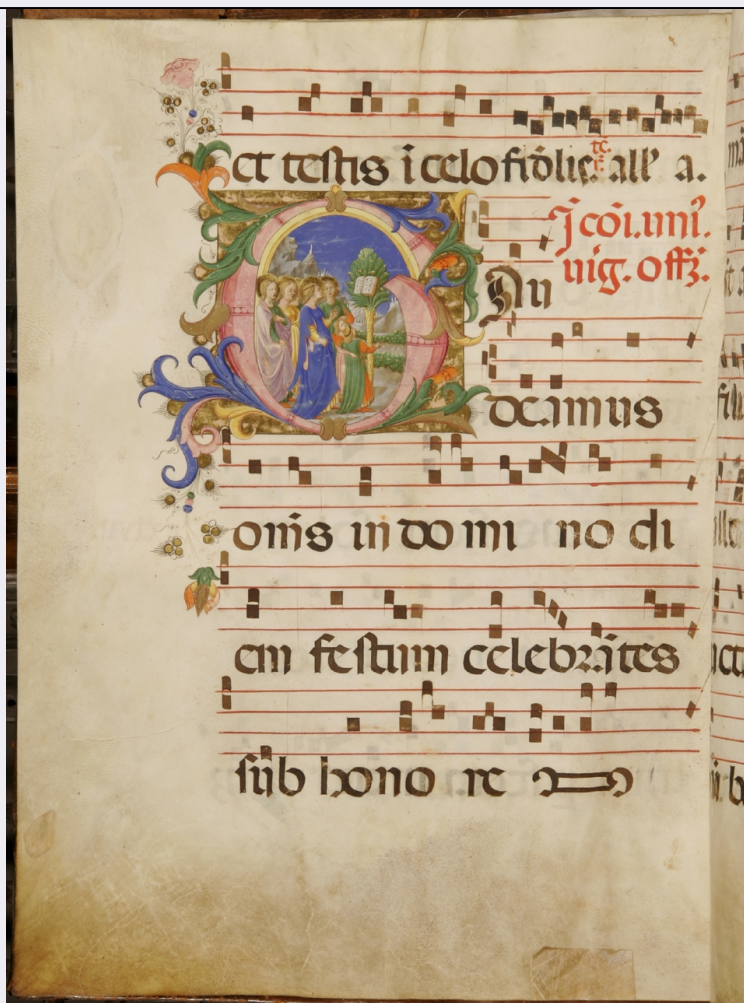 et testis ī celo fidelis all' a.
I cōi. uni.
uig. offȝ.
GAu
deamus
om̄s in do mi no di
em festum celebrātes
sub hono re